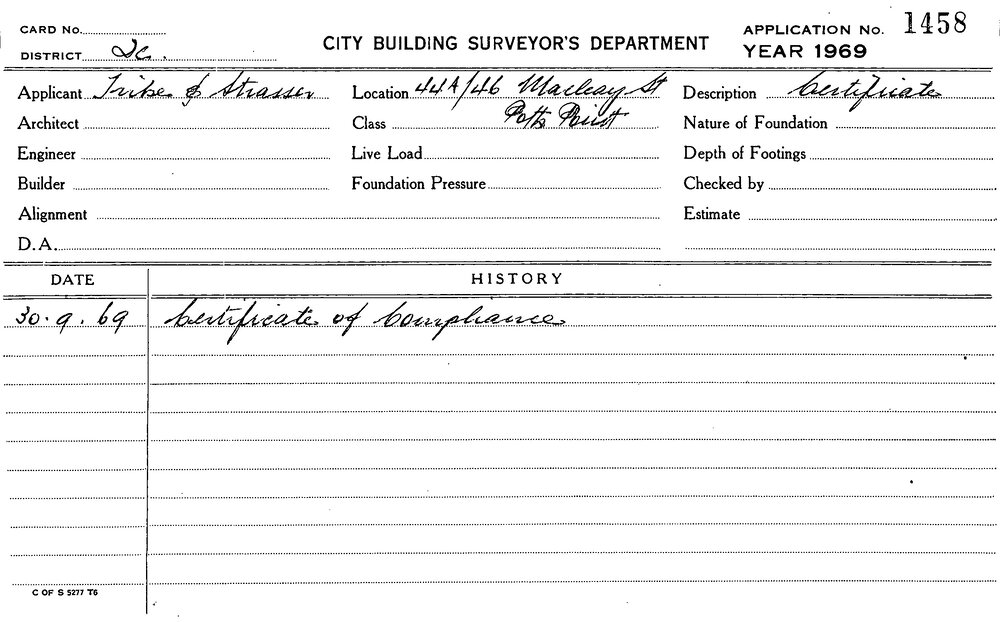 CARD No.
DISTRICT
CITY BUILDING SURVEYOR'S DEPARTMENT
APPLICATION No. 1458
YEAR 1969
Applicant Tribe & Strasser Location 44A/46 Macleay St Description Certificate
Potts Point
Architect Class Nature of Foundation
Engineer Live Load Depth of Footings
Builder Foundation Pressure Checked by
Alignment Estimate
D.A.
DATE HISTORY
30.9.69 Certificate of Compliance
C OF S 5277 T6